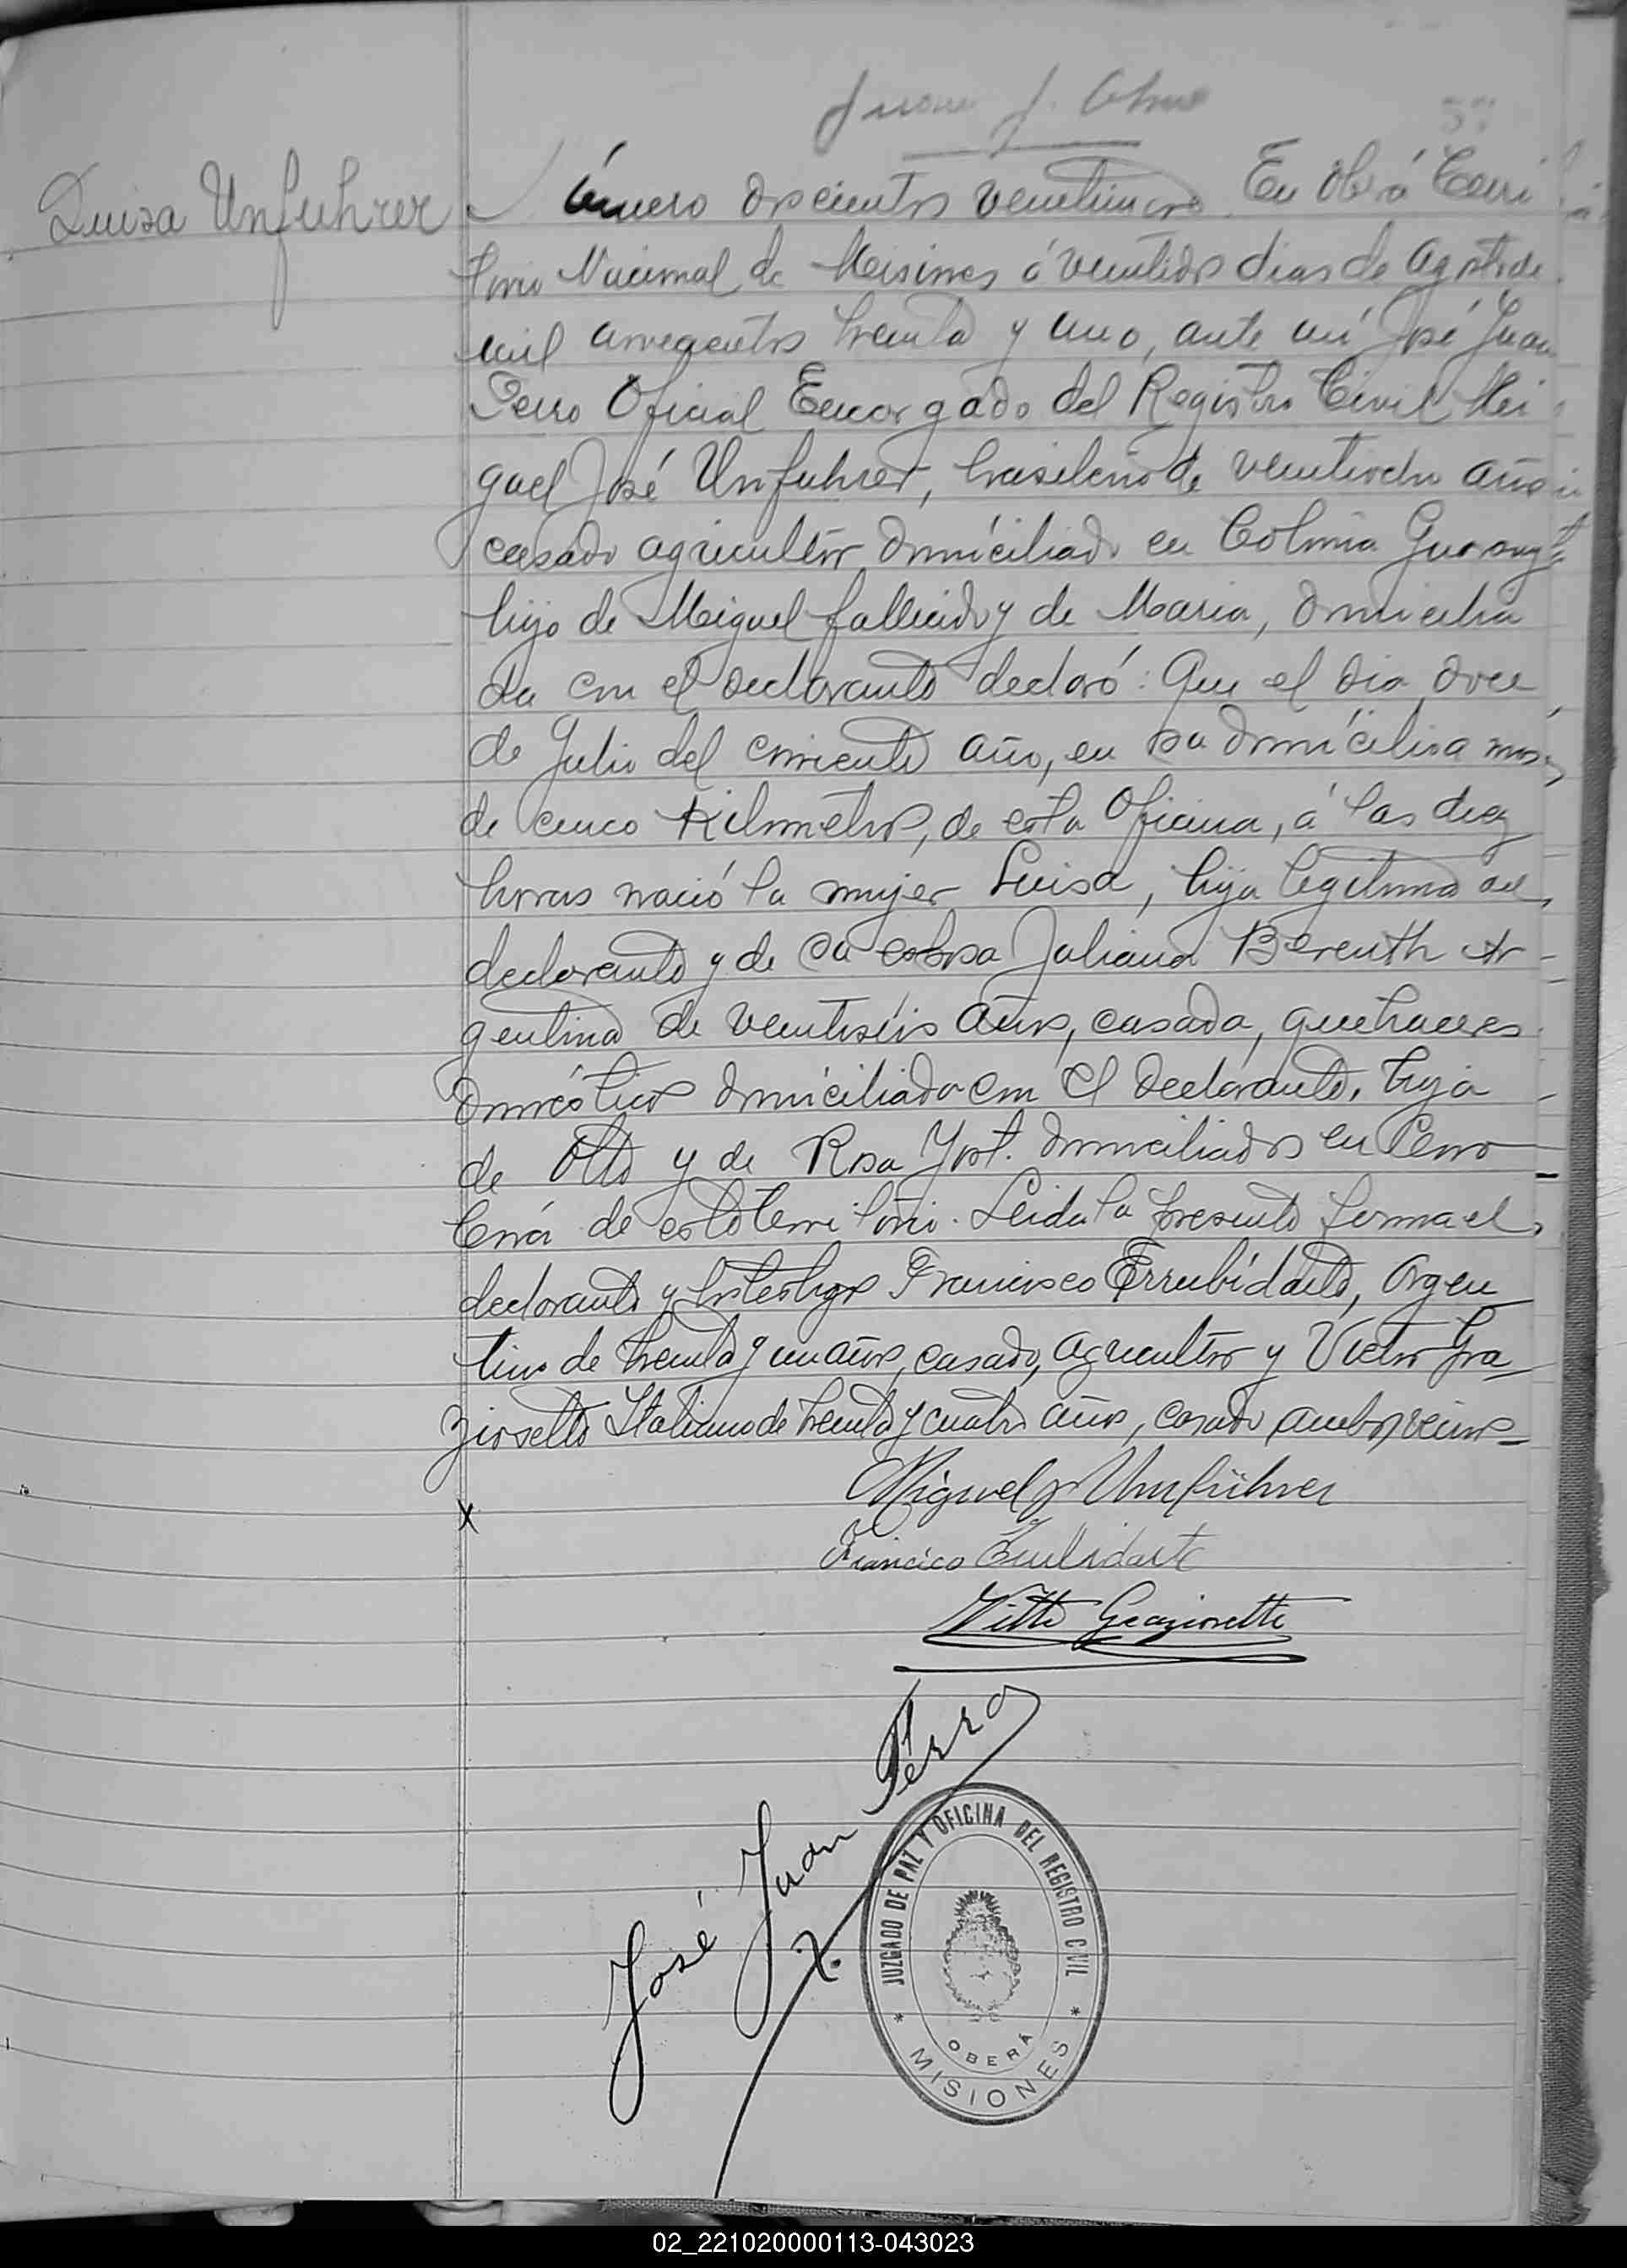 Luisa Unfuhrer
Número doscientos En Oberá Terri
torio Nacional de Misiones á veintidos dias de Agosto de
mil novecientos treinta y uno, ante mí José Juan
Perro Oficial Encargado del Registro Civil Mi
guel José Unfuhrer, brasileño de veintiocho años
casado agricultor domiciliado en Colonia
hijo de Miguel fallecido y de Maria, domicilia
da con el declarante declaró: Que el dia doce
de Julio del corriente año, en su domicilio a mas
de cinco Kilometros, de esta Oficina, á las diez
horas nació la mujer Luisa, hija legitima del
declarante y de su esposa Juliana Berenth Ar
gentina de veintiseis años, casada, quehaceres
domésticos domiciliada con el declarante, hija
de Otto y de Rosa Yost. domiciliados en Cerro
Corá de este territorio. Leida la presente firma el
declarante y los testigos Francisco Errubidarte, Argen
tino de treinta y un años, casado, agricultor y Victor Gra
ziosetto Italiano de treinta y cuatro años, casado ambos vecinos
Miguel J. Unführer
Francisco
Graziosetti
José Juan Perro
JUZGADO DE PAZ Y OFICINA DEL REGISTRO CIVIL
OBERA
* MISIONES *
02_221020000113-043023